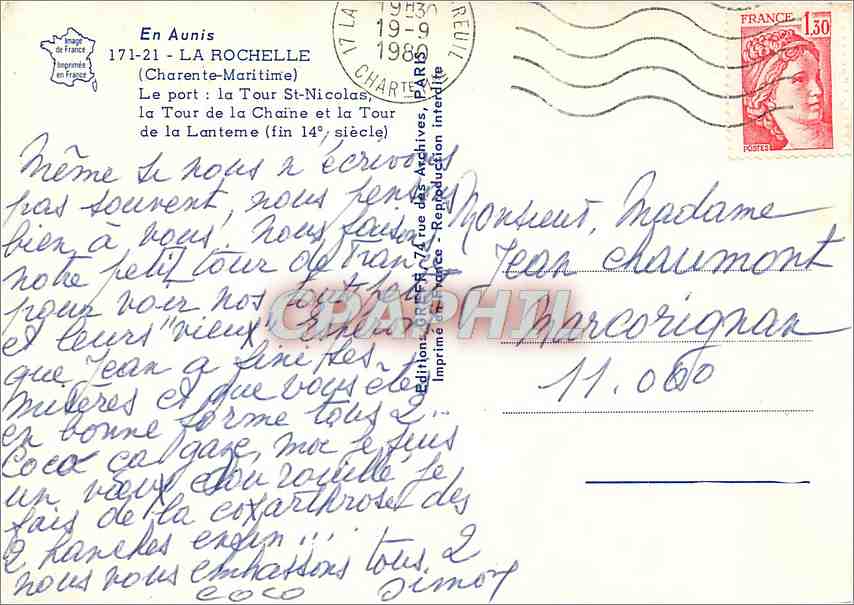 Image
de France
Imprimée
en France
En Aunis
171-21 - LA ROCHELLE
(Charente-Maritime)
Le port : la Tour St-Nicolas,
la Tour de la Chaîne et la Tour
de la Lanterne (fin 14e siècle)
17 LA REUIL
19H30
19-9
1980
CHARTE
FRANCE 1,30
POSTES
Même si nous n'écrivons
pas souvent, nous pensons
bien à vous. Nous faisons
notre petit tour de France
pour voir nos tout
et leurs "vieux". Espérons
que Jean a fini ses
misères et que vous êtes
en bonne forme tous 2...
Coco ça gaze, moi je suis
un vieux clou rouillé, je
fais de la coxarthrose des
2 hanches enfin...
nous vous embrassons tous 2
Coco Simon
Monsieur, Madame
Jean Chaumont
Marcorignan
11.000
Editions GREFF, 74 rue des Archives, PARIS
Imprimé en France - Reproduction interdite
CPAPHIL